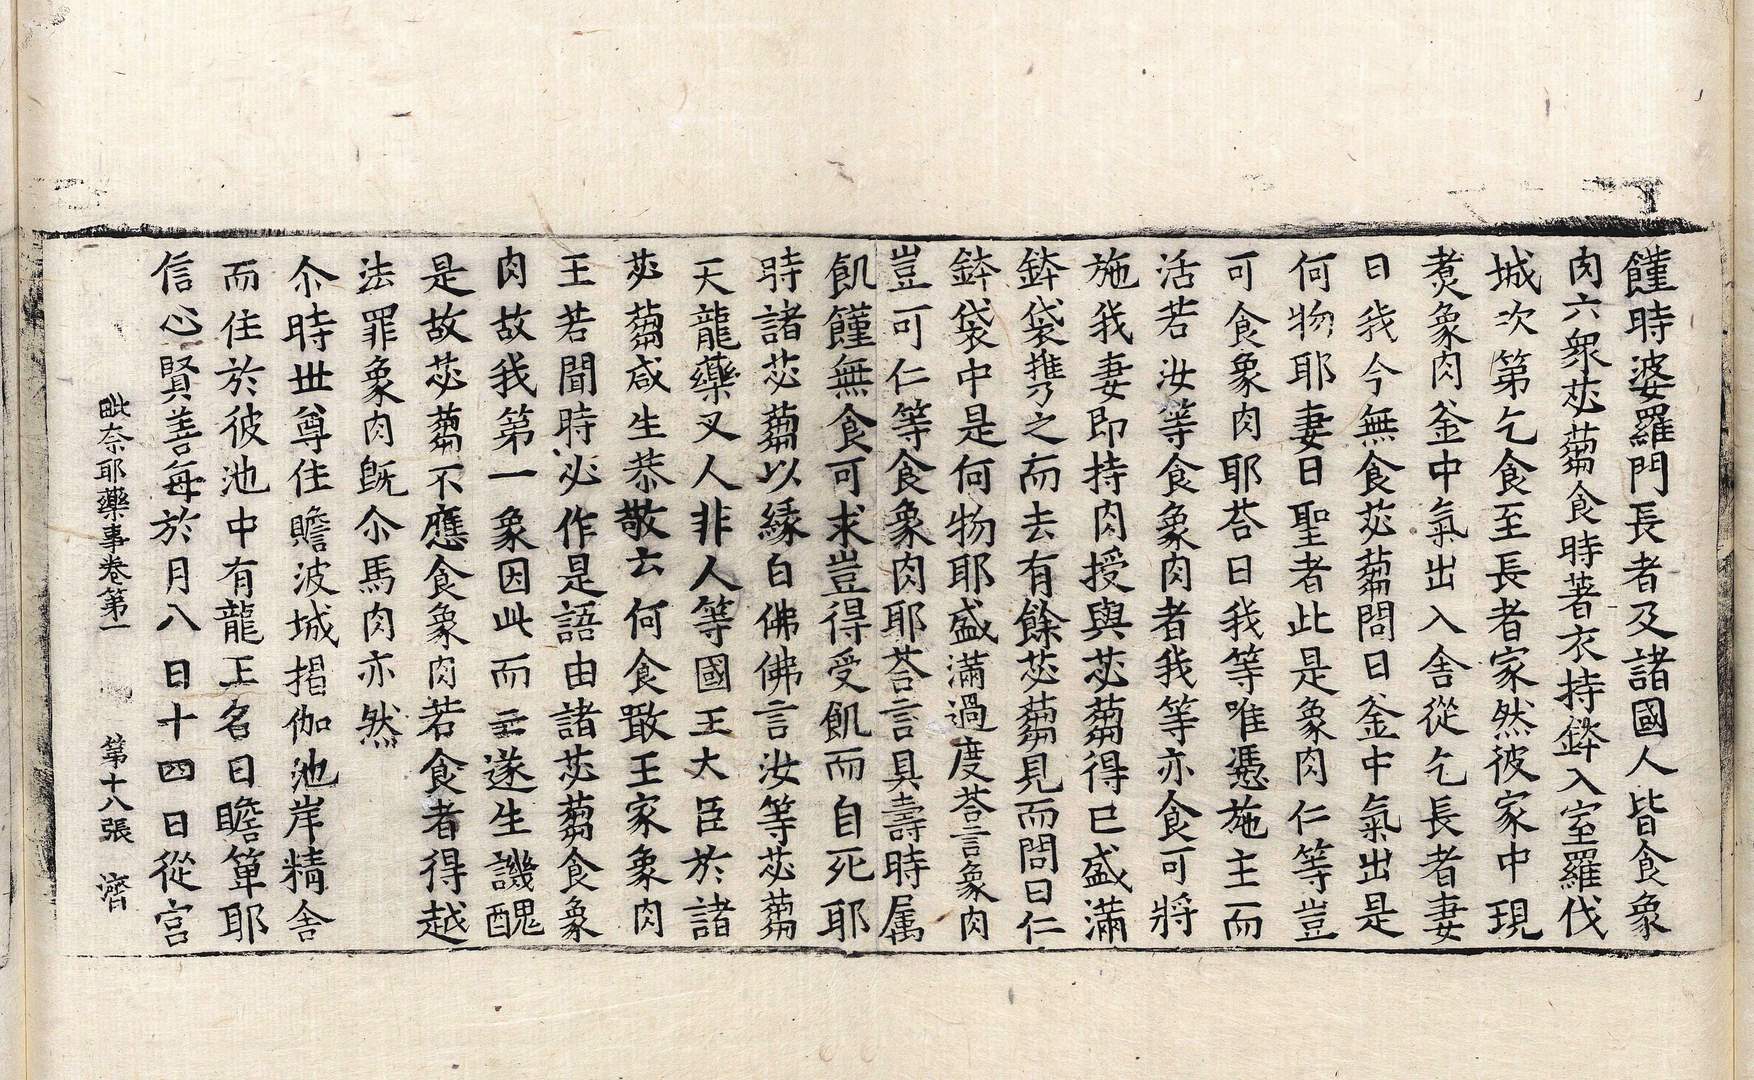 饉時婆羅門長者及諸國人皆食象
肉六衆苾蒭食時著衣持鉢入室羅伐
城次第乞食至長者家然彼家中現
煑象肉釜中氣出入舍從乞長者妻
曰我今無食苾蒭問曰釜中氣出是
何物耶妻曰聖者此是象肉仁等豈
可食象肉耶荅曰我等唯憑施主而
活若汝等食象肉者我等亦食可將
施我妻即持肉授與苾蒭得已盛滿
鉢袋攜之而去有餘苾蒭見而問曰仁
鉢袋中是何物耶盛滿過度荅言象肉
豈可仁等食象肉耶荅言具壽時属
飢饉無食可求豈得受飢而自死耶
時諸苾蒭以緣白佛佛言汝等苾蒭
天龍藥叉人非人等國王大臣於諸
苾蒭咸生恭敬云何食噉王家象肉
王若聞時必作是語由諸苾蒭食象
肉故我第一象因此而亡遂生譏醜
是故苾蒭不應食象肉若食者得越
法罪象肉旣尒馬肉亦然
尒時世尊住瞻波城揭伽池岸精舎
而住於彼池中有龍王名曰瞻箄耶
信心賢善每於月八日十四日從宫
毗奈耶藥事卷第一 第十八張 濟